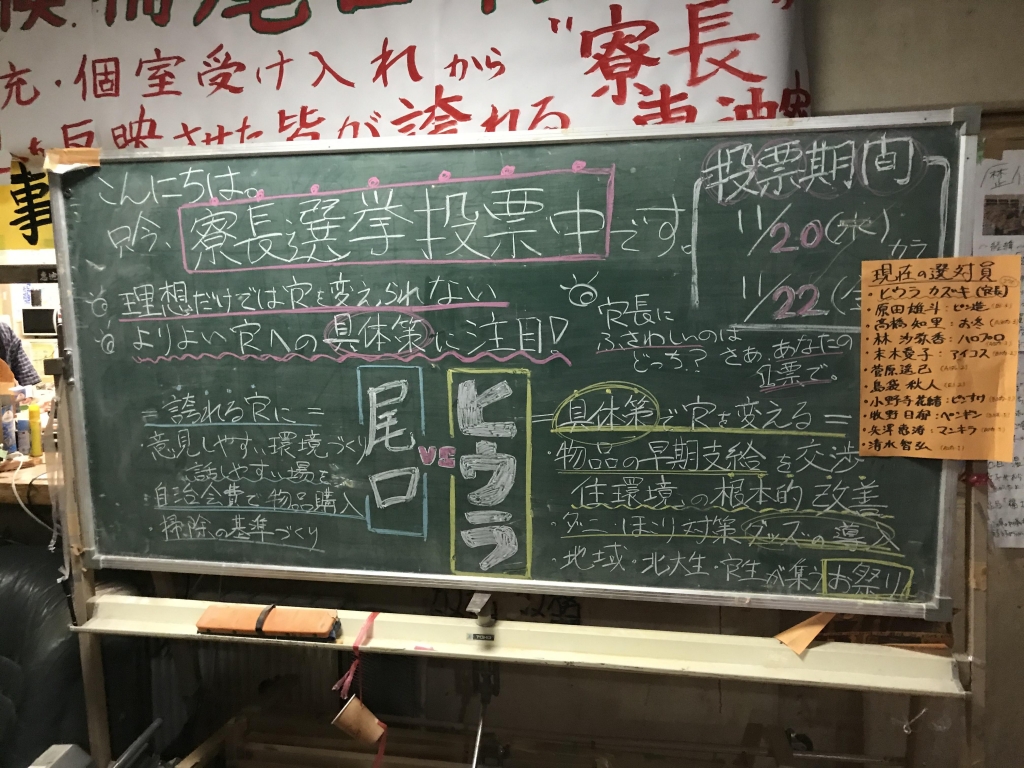 充・個室受け入れから"寮長"
反映させた皆が誇れる
こんにちは。
只今、寮長選挙投票中です。
理想だけでは寮を変えられない
よりよい寮への具体策に注目!
投票期間
11/20(水)から
11/22(金
寮長に
ふさわしいのは
どっち? さあ、あなたの
1票で。
=誇れる寮に=
意見しやすい環境づくり
話しやすい場を
・自治会費で物品購入
・掃除の基準づくり
尾口
VS
ヒウラ
=具体策で寮を変える=
・物品の早期支給を交渉
住環境の根本的改善
・ダニ・ほこり対策グッズの導入
・地域・北大生・寮生が集うお祭り
現在の選対員
・ヒウラ カズキ(寮長)
・原田 雄斗:ピ逵
・高橋 知里:お冬
・林 沙弥香:ハロプロ
・末木愛子:アイコス
・菅原遥己
・島袋 秋人
・小野寺花緒:ピすけ
・牧野 日樹:ペンギン
・清水智弘
事